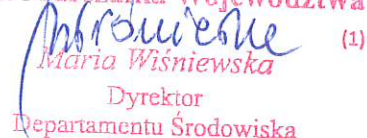 Województwa
(1)
Maria Wiśniewska
Dyrektor
Departamentu Środowiska